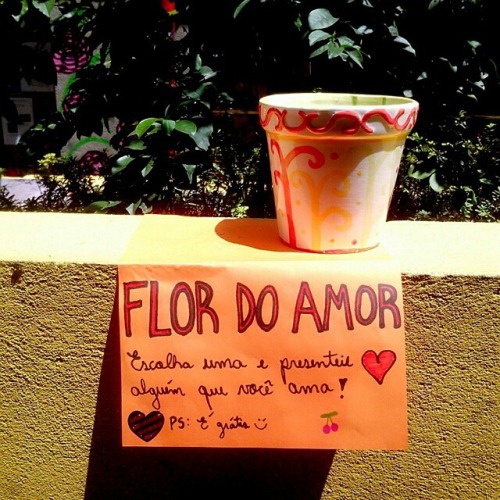 FLOR DO AMOR
Escolha uma e presenteie
alguém que você ama!
PS: É grátis